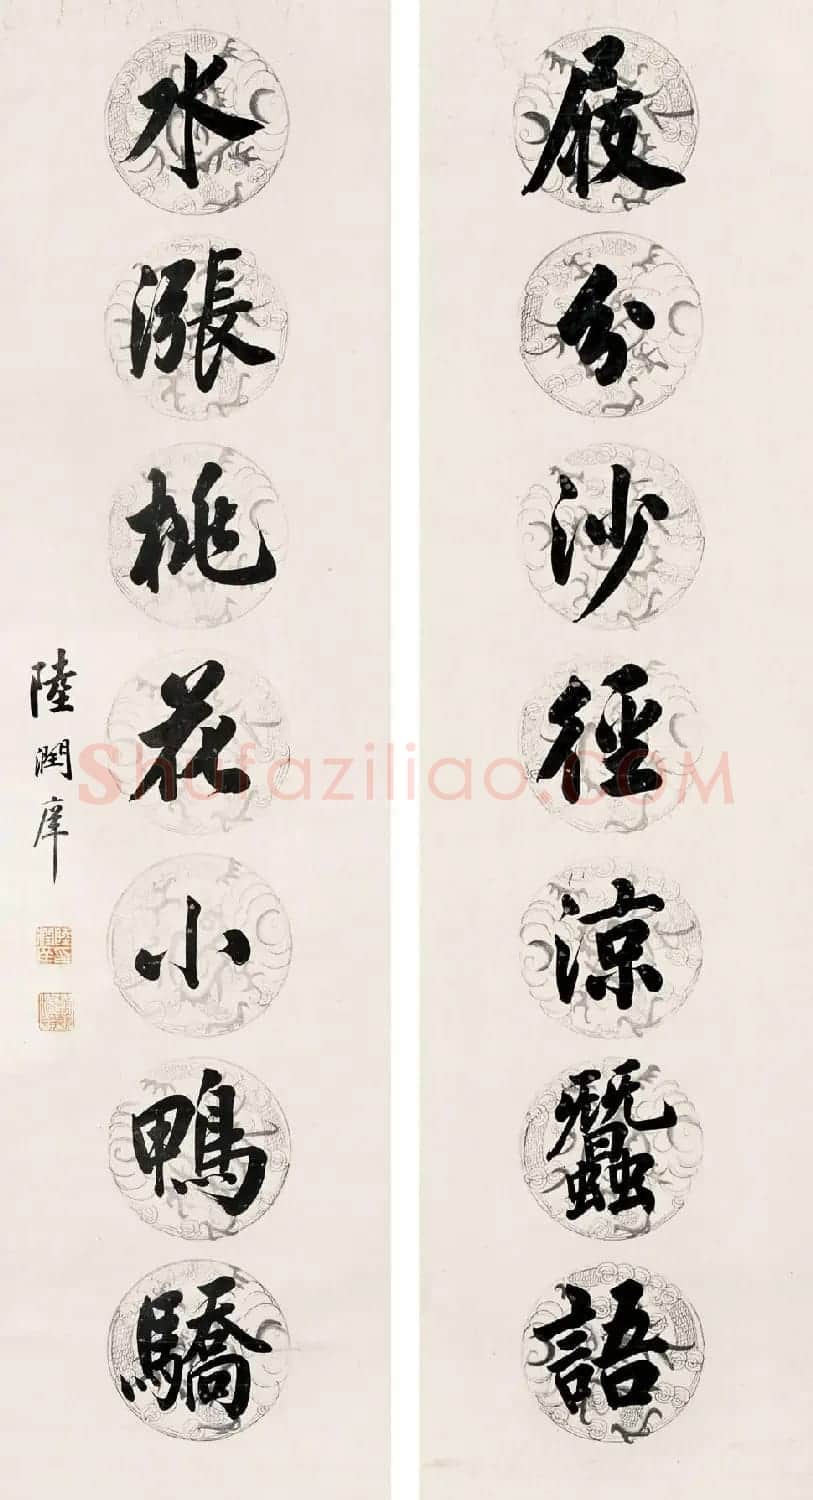 屐分沙徑涼蠶語
水漲桃花小鴨驕
陸潤庠
Shufaziliao.COM